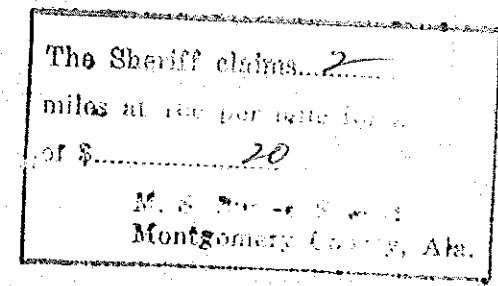 The Sheriff claims....2....
miles at 10c per mile for a
of $....................20
M. S.
Montgomery County, Ala.